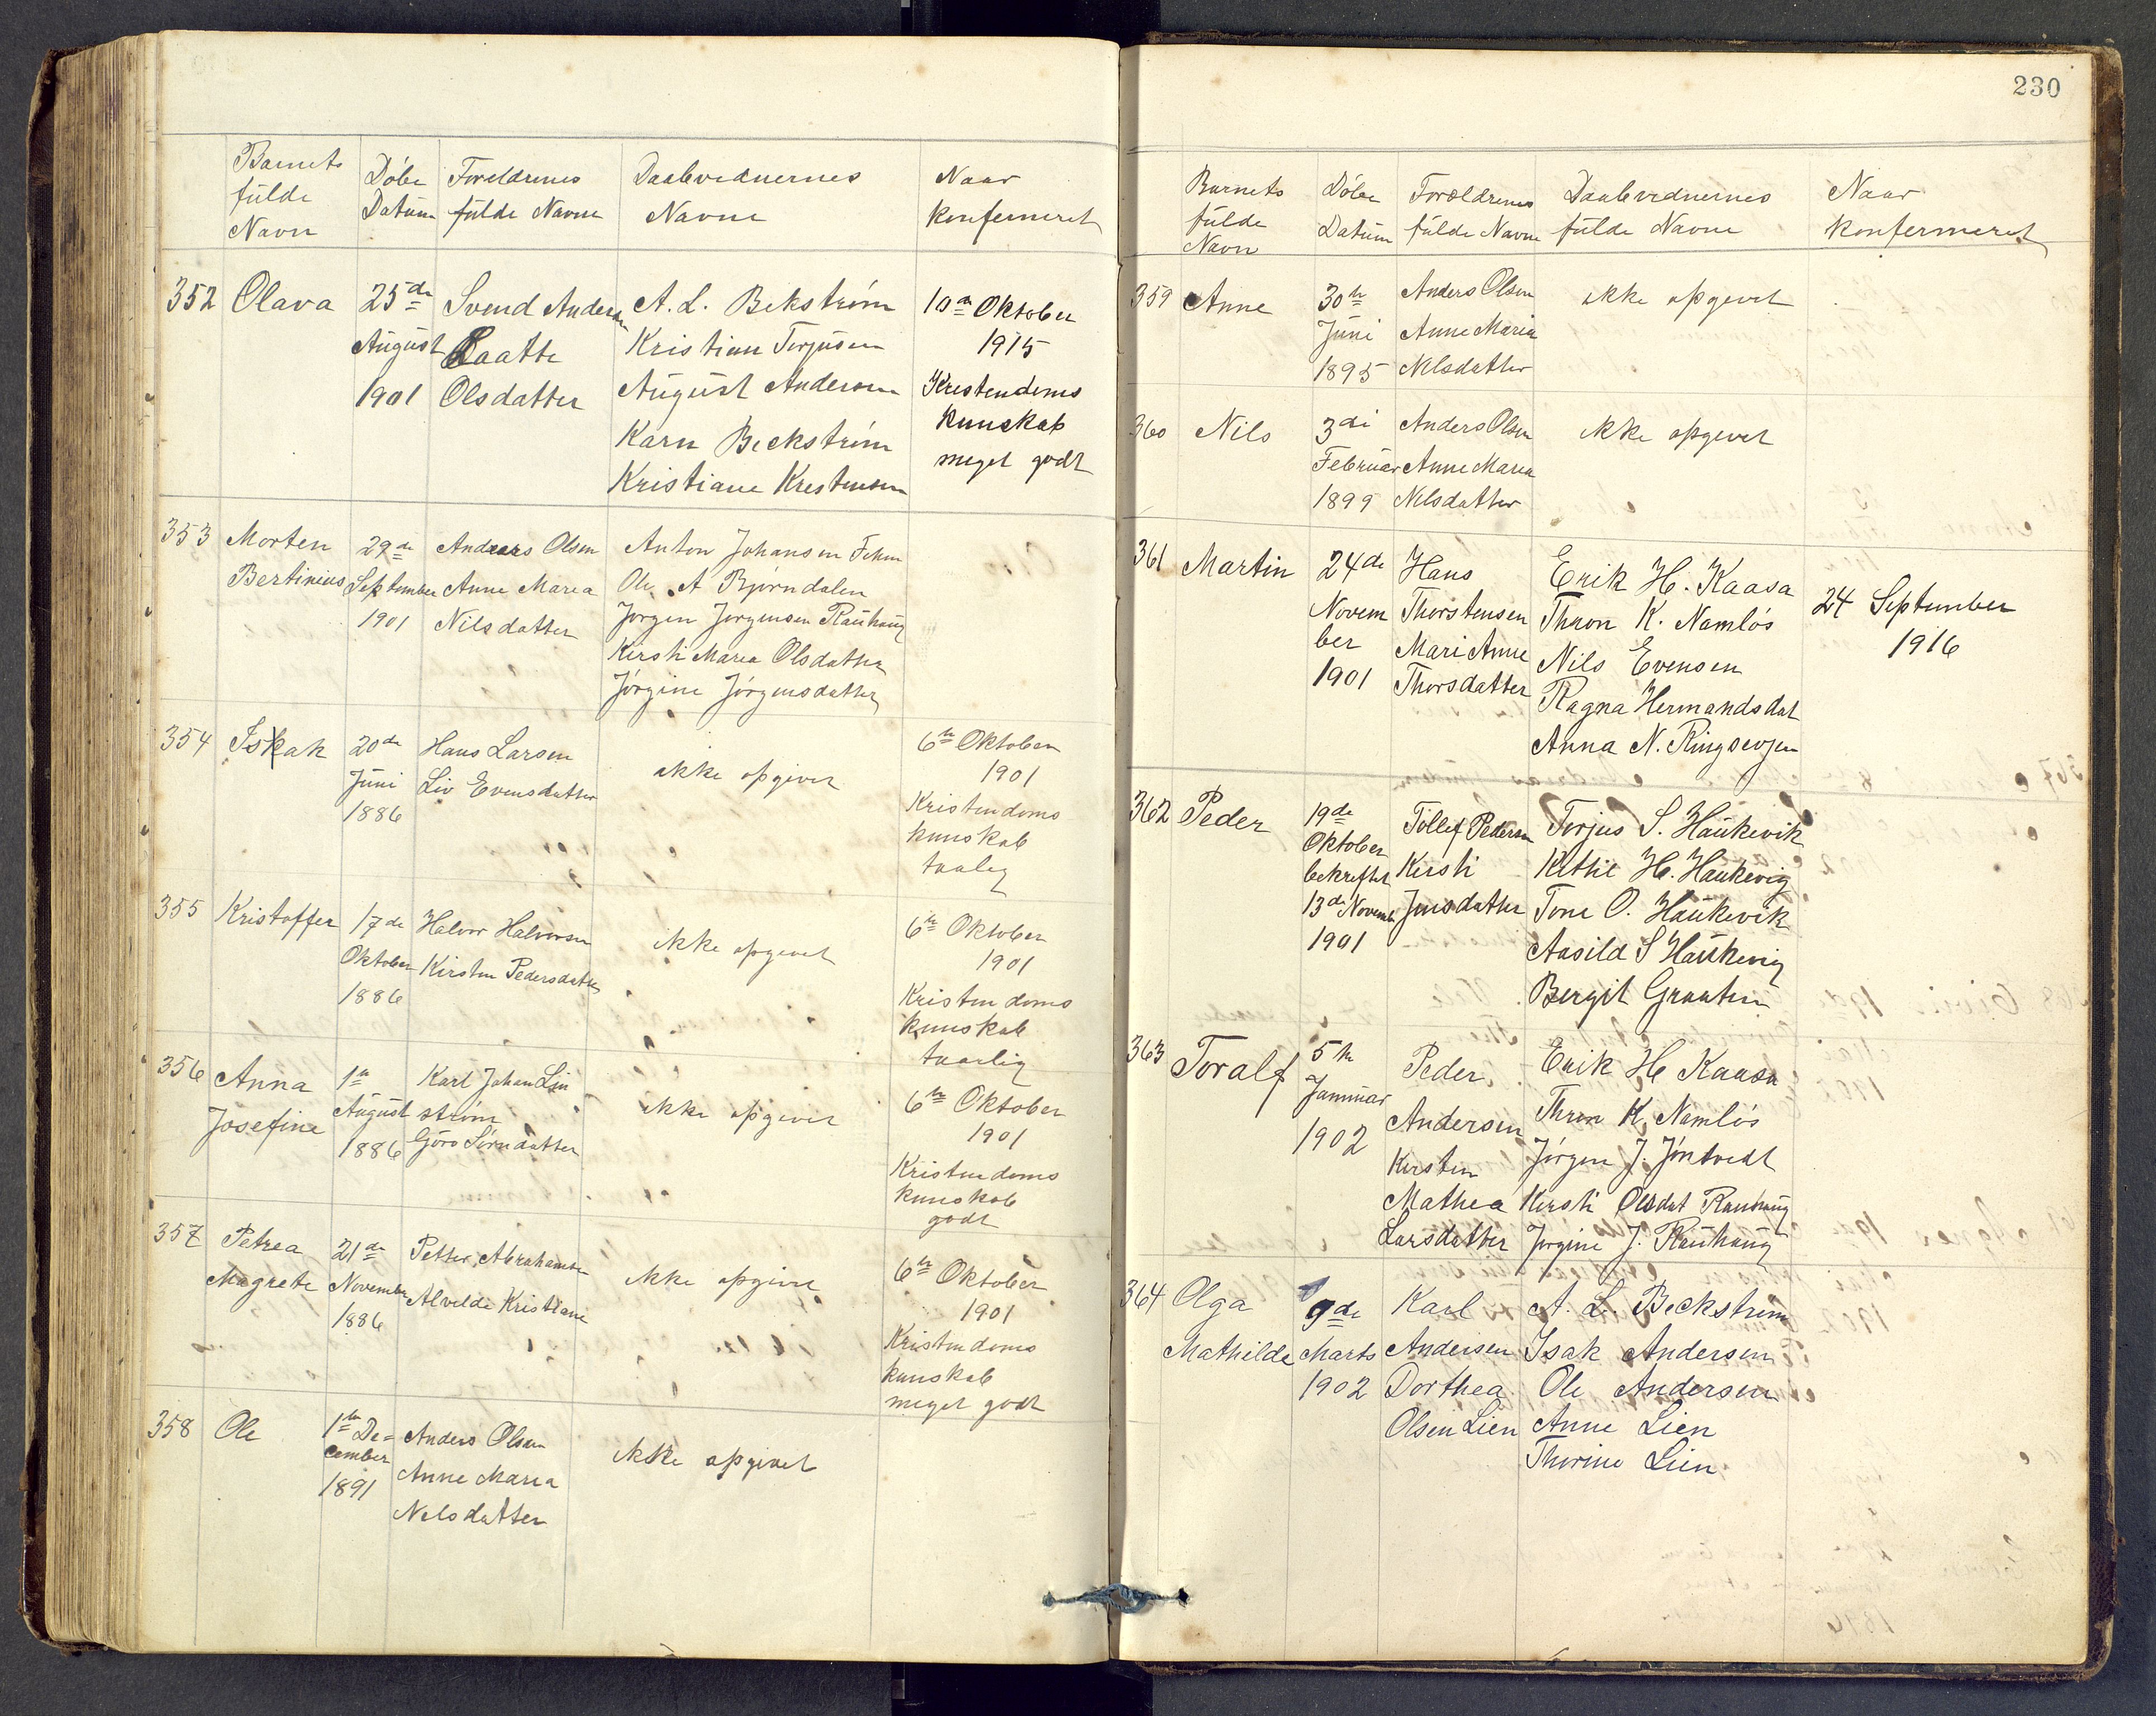 Barnets fulde Navn
Döbe Datum
Foreldrenes fulde Navne
Daabvednernes Navne
Naar konfermeret
352 Olava
25de August 1901
Svend Andersen
Raatte
Olsdatter
A. L. Bekström
Kristian Terjusen
August Andersen
Karn Beckström
Kristiane Krestensen
10de Oktober
1915
Kristendoms
kunskab
meget godt
353 Morten
Bertinius
29de
September
1901
Andreas Olsen
Anne Maria
Nilsdatter
Anton Johansen
Ole A Bjørndalen
Jorgen Jorgensen Rauhaug
Kirsti Maria Olsdatter
Jørgine Jørgensdatter
354 Iskak
20de
Juni
1886
Hans Larsen
Liv Evensdatter
ikke opgivet
6te Oktober
1901
Kristendoms
kunskab
taalig
355 Kristoffer
17de
Oktober
1886
Halvor Halvorsen
Kirsten Pedersdatter
ikke opgivet
6te Oktober
1901
Kristendoms
kunskab
taarlig
356 Anna
Josefine
1te
August
1886
Karl Johan Lin
ström
Göro Sörndatter
ikke opgivet
6te Oktober
1901
Kristendoms
kunskab
godt
357 Petrea
Magrete
21de
November
1886
Petter Abrahamsen
Alvelde Kristiane
ikke opgivet
6te Oktober
1901
Kristendoms
kunskab
meget godt
358 Ole
1te De=
cember
1891
Anders Olsen
Anne Maria
Nelsdatter
ikke opgivet
230
Barnets fulde Navn
Döbe Datum
Foreldrenes fulde Navne
Daabvednernes fulde Navne
Naar konfermeret
359 Anne
30te
Juni
1895
Anders Olsen
Anne Maria
Nelsdatter
ikke opgevet
360 Nils
3di
Februar
1899
Anders Olsen
Anne Maria
Nelsdatter
ikke opgevet
361 Martin
24de
Novem
ber
1901
Hans
Thorstensen
Mari Anne
Thorsdatter
Erik H. Kaasa
Thron K. Namlös
Nils Evensen
Ragna Hermandsdat
Anna N. Ringsevjen
24 September
1916
362 Peder
19de
Oktober
bekreftet
13de Novemb
1901
Tollef Pedersen
Kirsti
Jensdatter
Torjus S. Haukevik
Kittil H. Haukevig
Tone O. Haukevik
Aasild S Haukevig
Bergit Graaten
363 Toralf
5te
Januar
1902
Peder
Andersen
Kirsten
Mathea
Larsdatter
Erik H Kaasa
Thron K. Namlös
Jörgen J. Jöntvedt
Kirsti Olsdat Rauhaug
Jörgine J. Rauhaug
364 Olga
Mathilde
9de
Marts
1902
Karl
Andersen
Dorthea
Olsen Lien
A. L. Beckström
Isak Andersen
Ole Andersen
Anne Lien
Thorine Lien